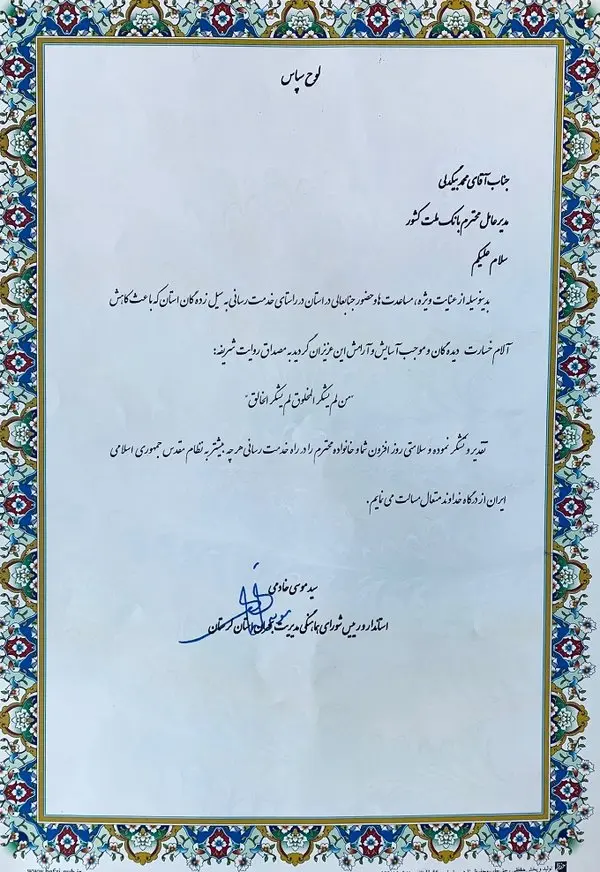 لوح سپاس
جناب آقای محمد بیگدلی
مدیر عامل محترم بانک ملت کشور
سلام علیکم
بدینوسیله از عنایت ویژه، مساعدت ها و حضور جنابعالی در استان در راستای خدمت رسانی به سیل زده گان استان که باعث کاهش
آلام خسارت دیده گان و موجب آسایش و آرامش این عزیزان گردید به مصداق روایت شریفه:
"من لم یشکر المخلوق لم یشکر الخالق"
تقدیر و تشکر نموده و سلامتی روز افزون شما و خانواده محترم را در راه خدمت رسانی هر چه بیشتر به نظام مقدس جمهوری اسلامی
ایران از درگاه خداوند متعال مسالت می نمایم.
سید موسی خادمی
استاندار و رییس شورای هماهنگی مدیریت بحران استان لرستان